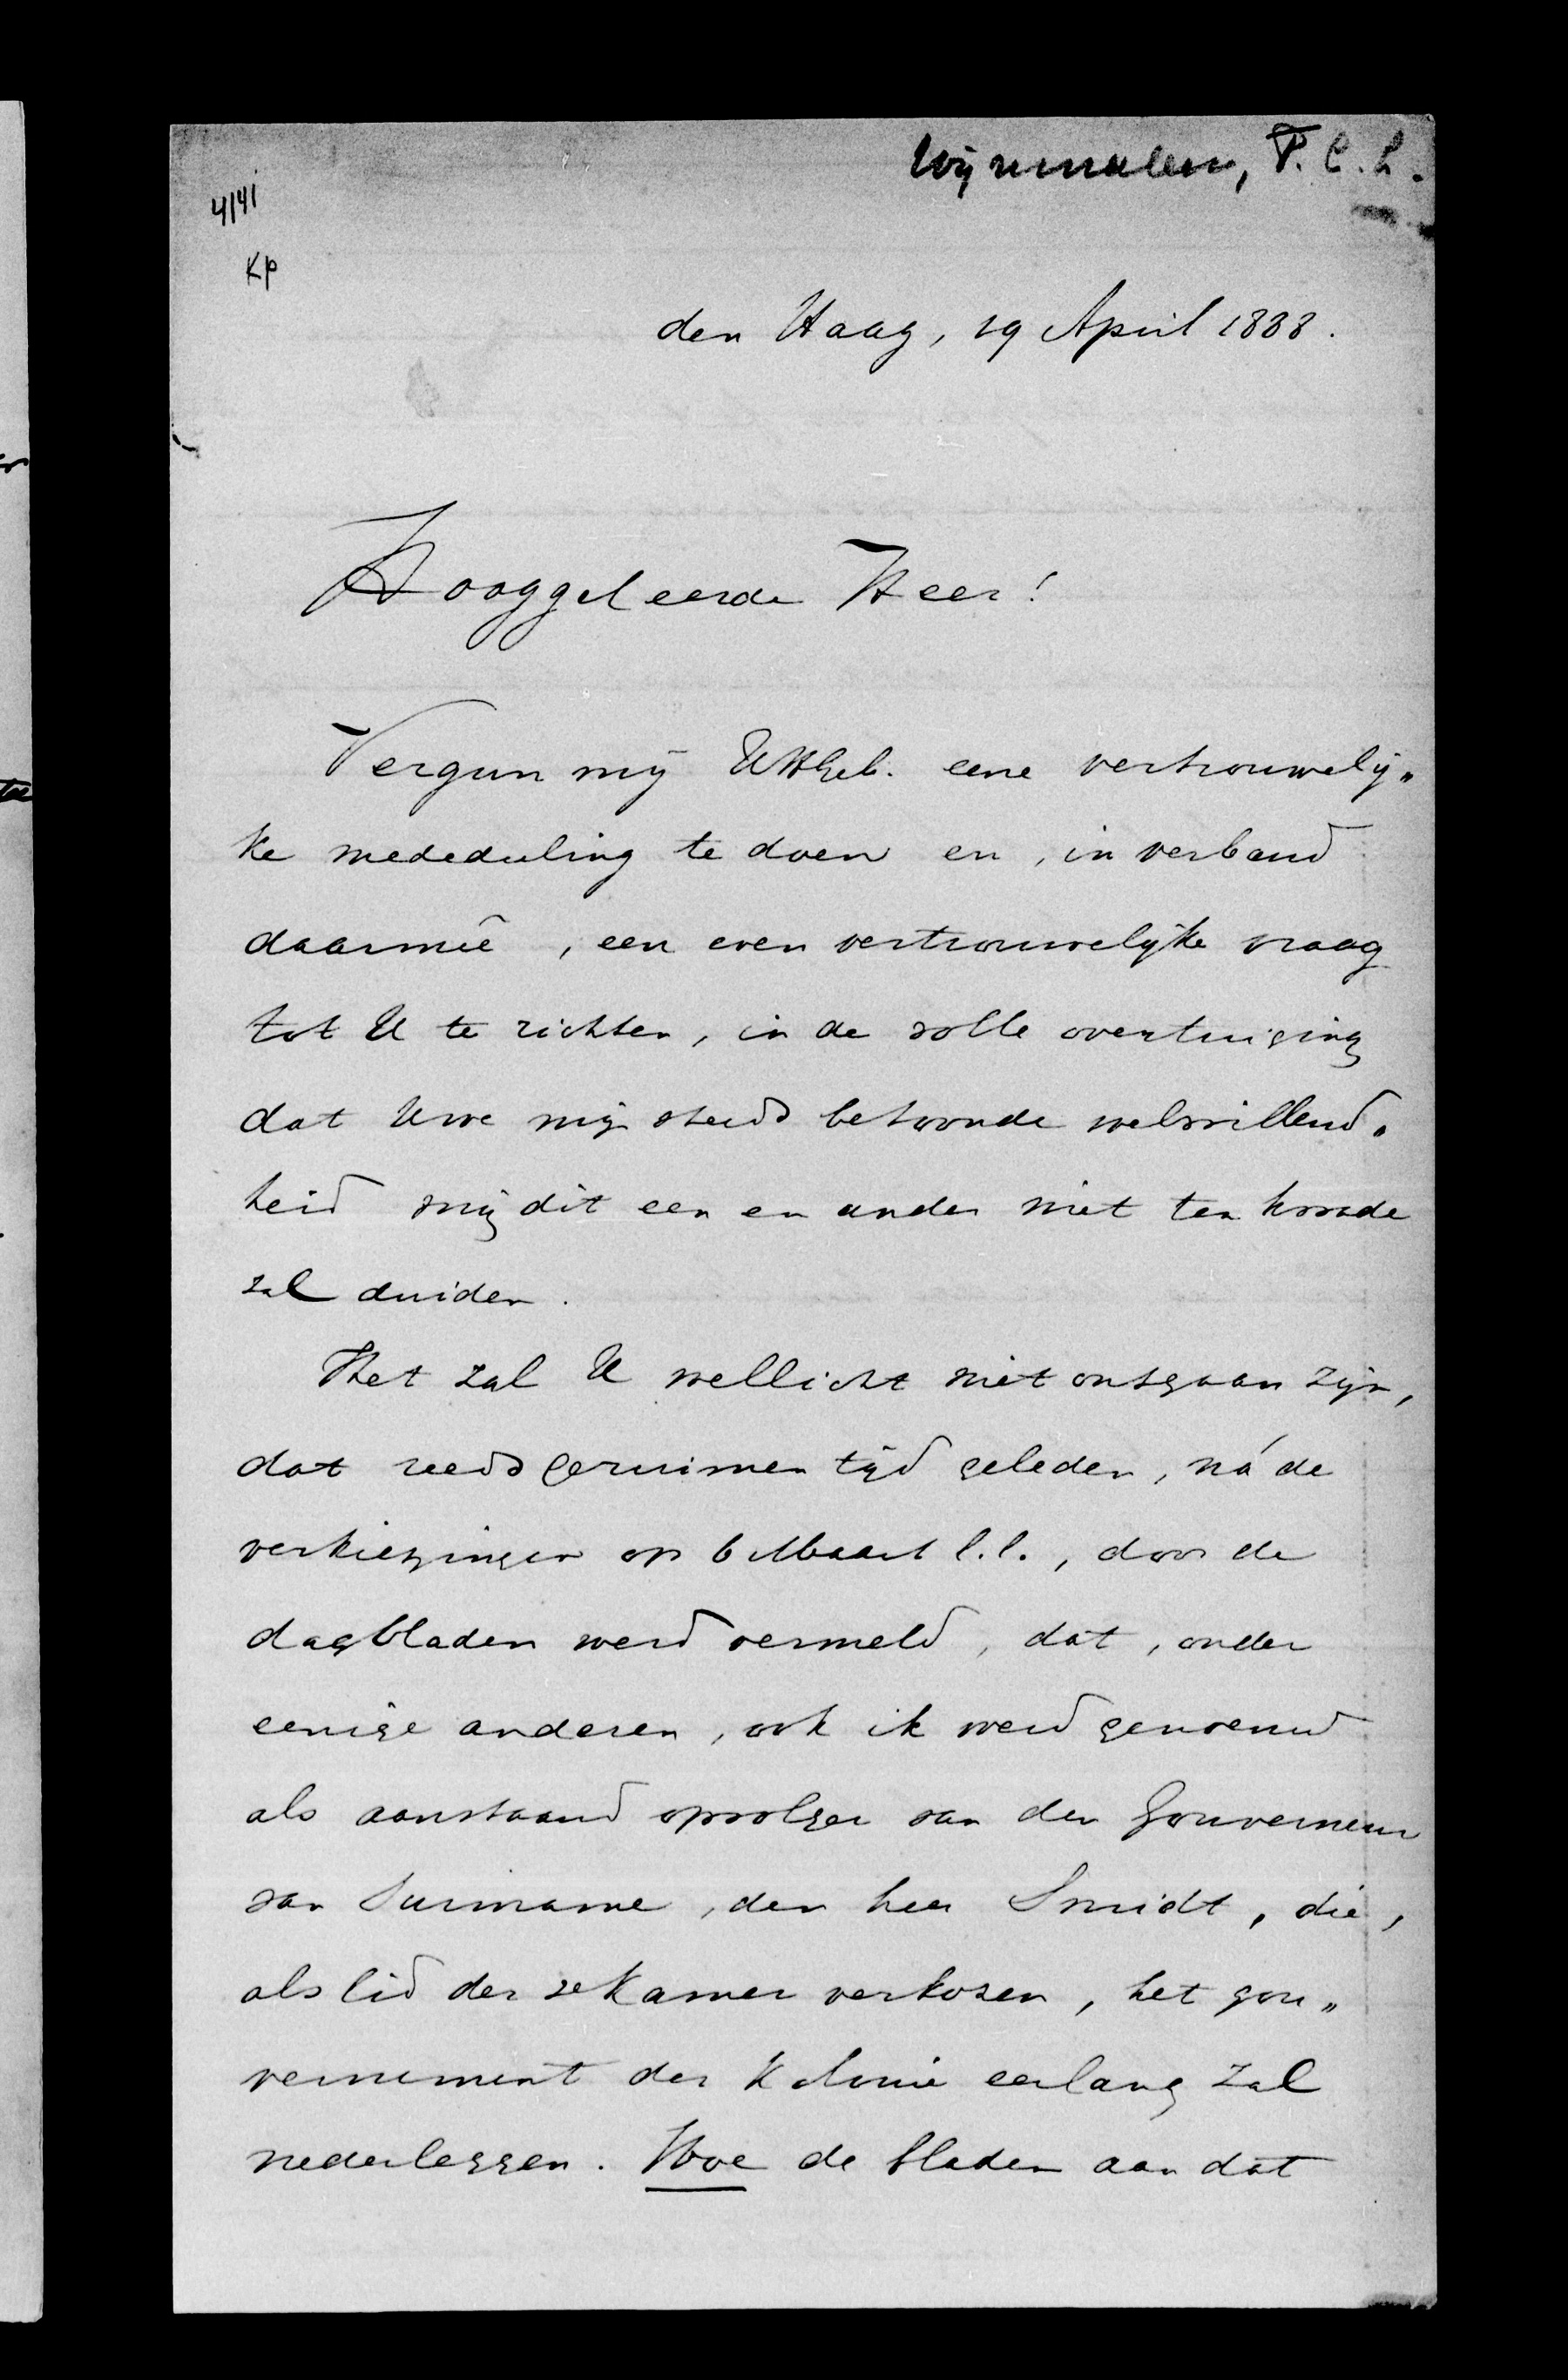 Wijnmalen, T. C. L.
4141
KP
den Haag, 19 April 1888.
Hooggeleerde Heer!
Vergun mij UHGeb. eene vertrouwelij„
ke mededeeling te doen en, in verband
daarmeê, een even vertrouwelijke vraag
tot U te richten, in de volle overtuiging
dat Uwe mij steeds betoonde welwillend„
heid mij dit een en ander niet ten kwade
zal duiden.
Het zal U wellicht niet ontgaan zijn,
dat reeds geruimen tijd geleden, ná de
verkiezingen op 6 Maart l.l., door de
dagbladen werd vermeld, dat, onder
eenige anderen, ook ik werd genoemd
als aanstaand opvolger van den Gouverneur
van Suriname, den heer Smidt, die,
als lid der 2e Kamer verkozen, het gou„
vernement der Kolonie eerlang zal
nederleggen. Hoe de bladen aan dat